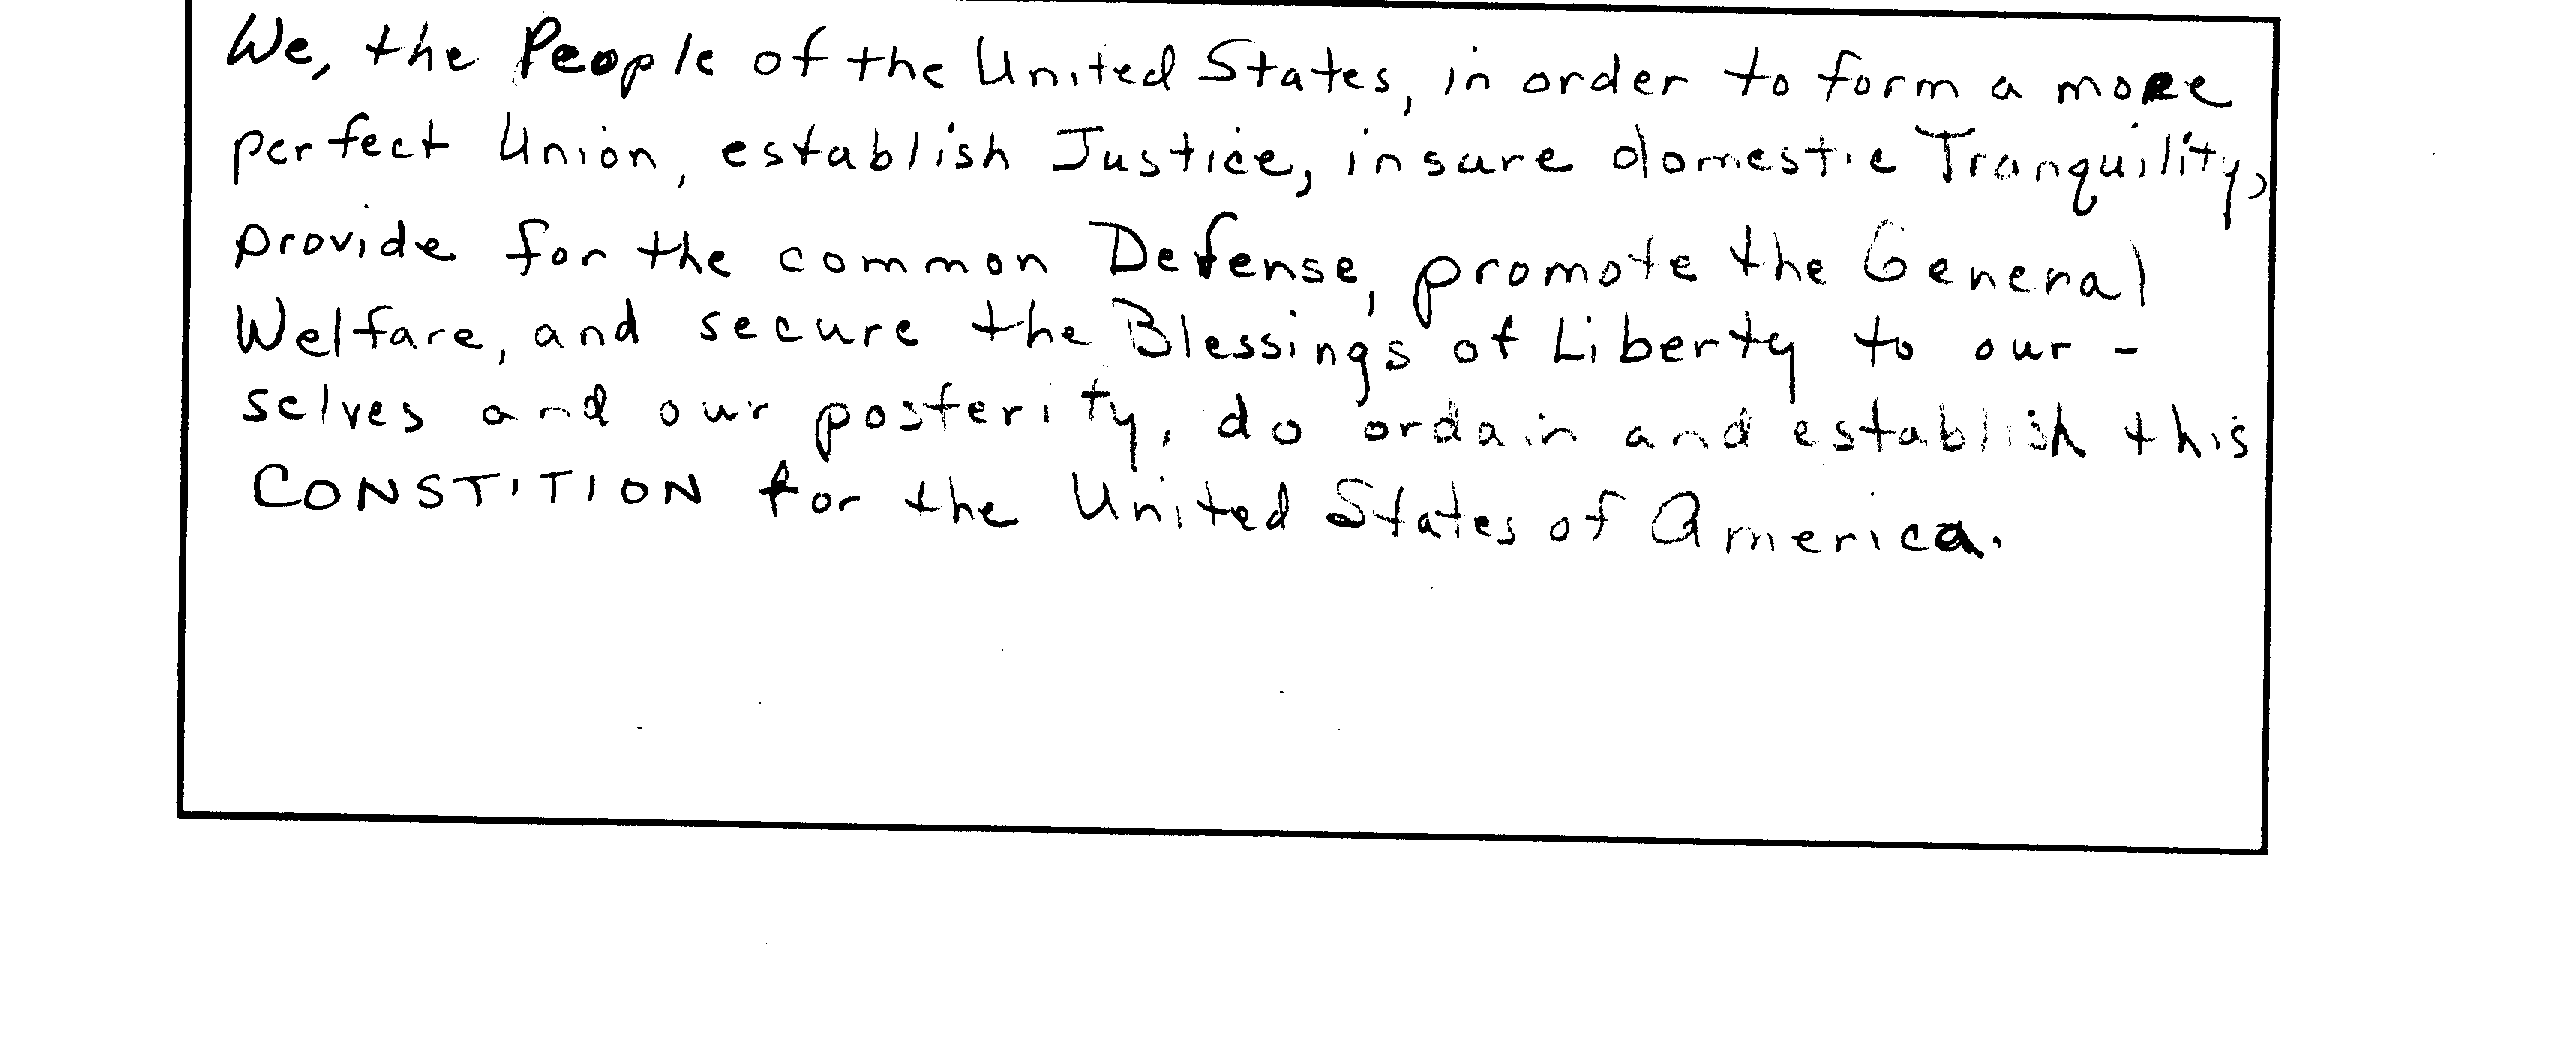 We, the People of the United States, in order to form a more
perfect Union, establish Justice, insure domestic Tranquility,
provide for the common Defense, promote the General
Welfare, and secure the Blessings of Liberty to our-
selves and our posterity, do ordain and establish this
CONSTITION for the United States of America.